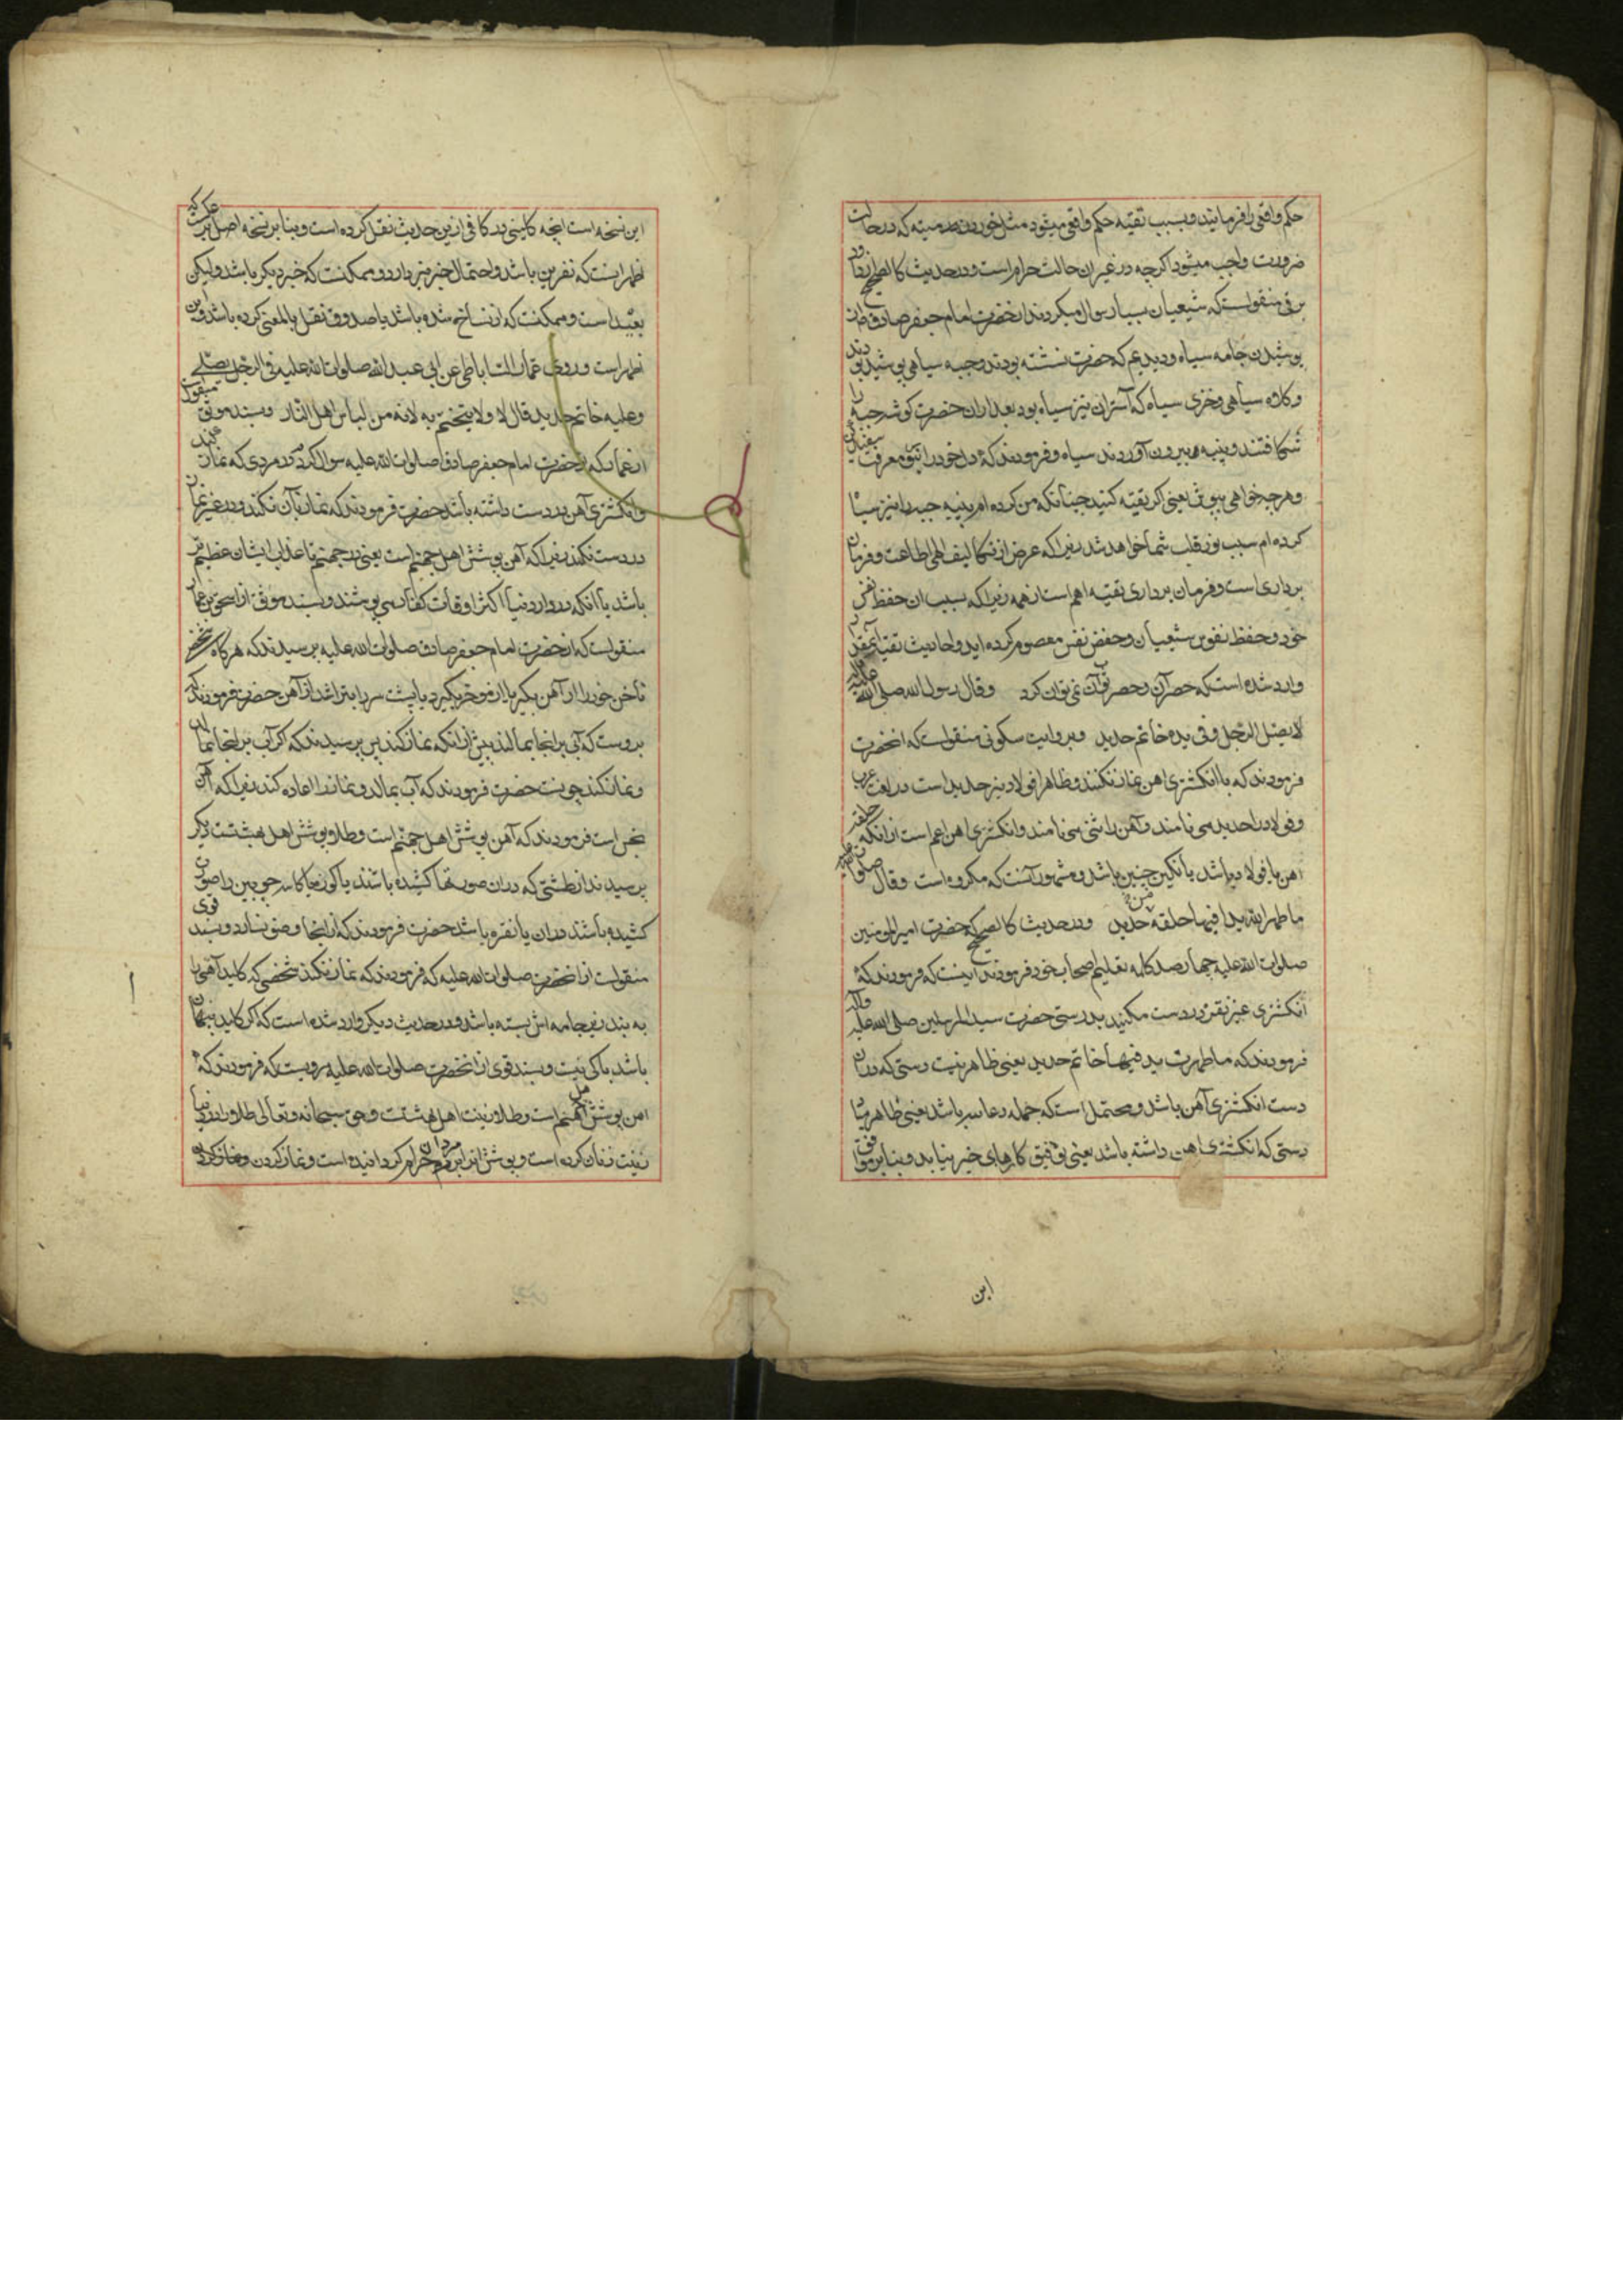 حکم واقعی را فرمایند و بسبب تقیه حکم واقعی میشود مثل خوردن میته که در حالت
ضرورت واجب میشود اکرچه در غیر ان حالت حرام است و در حدیث کالصحیح از داود
برقی منقولست که شیعیان بسیار سوال میکردند از حضرت امام جعفر صادق از
پوشیدن جامه سیاه و دیدیم که حضرت نشسته بودند و جبه سیاهی پوشیده بودند
و کلاه سیاهی و خزی سیاه که آستر آن نیز سیاه بود بعد از ان حضرت کوشه جبه را
شکافتند و پنبه بیرون آوردند سیاه و فرمودند که دل خود را بنور معرفت سفید کن
و هرچه خواهی بپوش یعنی اکر تقیه کنید چنانکه من کرده ام پنبه جبه را نیز سیاه
کرده ام سبب نور قلب شما خواهد شد زیرا که غرض از تکالیف الهی اطاعت و فرمان
برداری است و فرمان برداری تقیه اهم است از همه زیرا که سبب ان حفظ نفس
خود و حفظ نفوس شیعیان و حفظ نفس معصوم کرده اید و احادیث تقیه آنقدر
وارد شده است که حصر آن نمیتوان کرد و قال رسول الله صلی الله علیه و اله
لا یصل الرجل و فی یده خاتم حدید و بروایت سکونی منقولست که انحضرت
فرمودند که با انکشتری اهن نماز نکنند و ظاهرا فولاد نیز حدید است در لغت عرب
و فولاد را حدید می نامند و آهن را نثی می نامند و انکشتری اهن اعم است از انکه حلقه
اهن یا فولاد باشد یا نکین چنین باشد و مشهور آنست که مکروه است و قال صلوات الله علیه
ما طهر الله یدا فیها حلقة حدید و در حدیث کالصحیح که حضرت امیر المومنین
صلوات الله علیه چهار صد کلمه تعلیم اصحاب خود فرمودند اینست که فرمودند که
انکشتری غیر نقره در دست مکنید بدرستی حضرت سید المرسلین صلی الله علیه و آله
فرمودند که ما طهرت ید فیها خاتم حدید یعنی ظاهر نیست دستی که در ان
دست انکشتری آهن باشد و محتمل است که جمله دعاییه باشد یعنی طاهر مباد
دستی که انکشتری اهن داشته باشد یعنی توفیق کارهای خیر نیابد و بنابر موافق
این
این نسخه است انچه کلینی در کافی از این حدیث نقل کرده است و بنابر نسخه اصل
اظهر انست که نفرین باشد و احتمال خبر نیز دارد و ممکنست که خبر دیکر باشد ولیکن
بعید است و ممکنست که از نساخ شده باشد یا صدوق نقل بالمعنی کرده باشد و این
اظهر است و روی عمار الساباطی عن ابی عبد الله صلوات الله علیه فی الرجل یصلی
و علیه خاتم حدید قال لا و لا یتختم به لانه من لباس اهل النار و بسند موثق منقولست
از عمار که از حضرت امام جعفر صادق صلوات الله علیه سوال کردند در مردی که نماز کند
و انکشتری آهن در دست داشته باشد حضرت فرمودند که نماز با آن نکند و در غیر نماز
در دست نکند زیرا که آهن پوشش اهل جهنم است یعنی در جهنم تا عذاب ایشان عظیم تر
باشد یا آنکه در دار دنیا اکثر اوقات کفار می پوشند و بسند موثق از اسحق بن عمار
منقولست که از حضرت امام جعفر صادق صلوات الله علیه پرسیدند که هرکاه شخصی
ناخن خود را از آهن بکیرد یا از مو خود بکیرد یا پشت سر را بتراشد از آهن حضرت فرمودند که
بر اوست که آبی بر انجا بمالد پیش از انکه نماز کند پس پرسیدند که اکر آب بر انجا نمالد
و نماز کند چونست حضرت فرمودند که آب بمالد و نماز را اعاده کند زیرا که آهن
نجس است فرمودند که آهن پوشش اهل جهنم است و طلا پوشش اهل بهشتست دیکر
پرسیدند از طشتی که در ان صورتها کشیده باشند یا کوزه یا کاسه چوبین را صورت
کشیده باشند در ان یا نقره باشد حضرت فرمودند که از انجا وضو نسازد و بسند قوی
منقولست از انحضرت صلوات الله علیه که فرمودند که نماز نکند شخصی که کلید آهنی را
به بند زیر جامه اش بسته باشد و در حدیث دیکر وارد شده است که اکر کلید پنهان
باشد باکی نیست و بسند قوی از انحضرت صلوات الله علیه مرویست که فرمودند که
اهن پوشش اهل جهنم است و طلا زینت اهل بهشتست و حق سبحانه و تعالی طلا را در دنیا
زینت زنان کرده است و پوشش انرا بر مردان حرام کردانیده است و نماز کردن